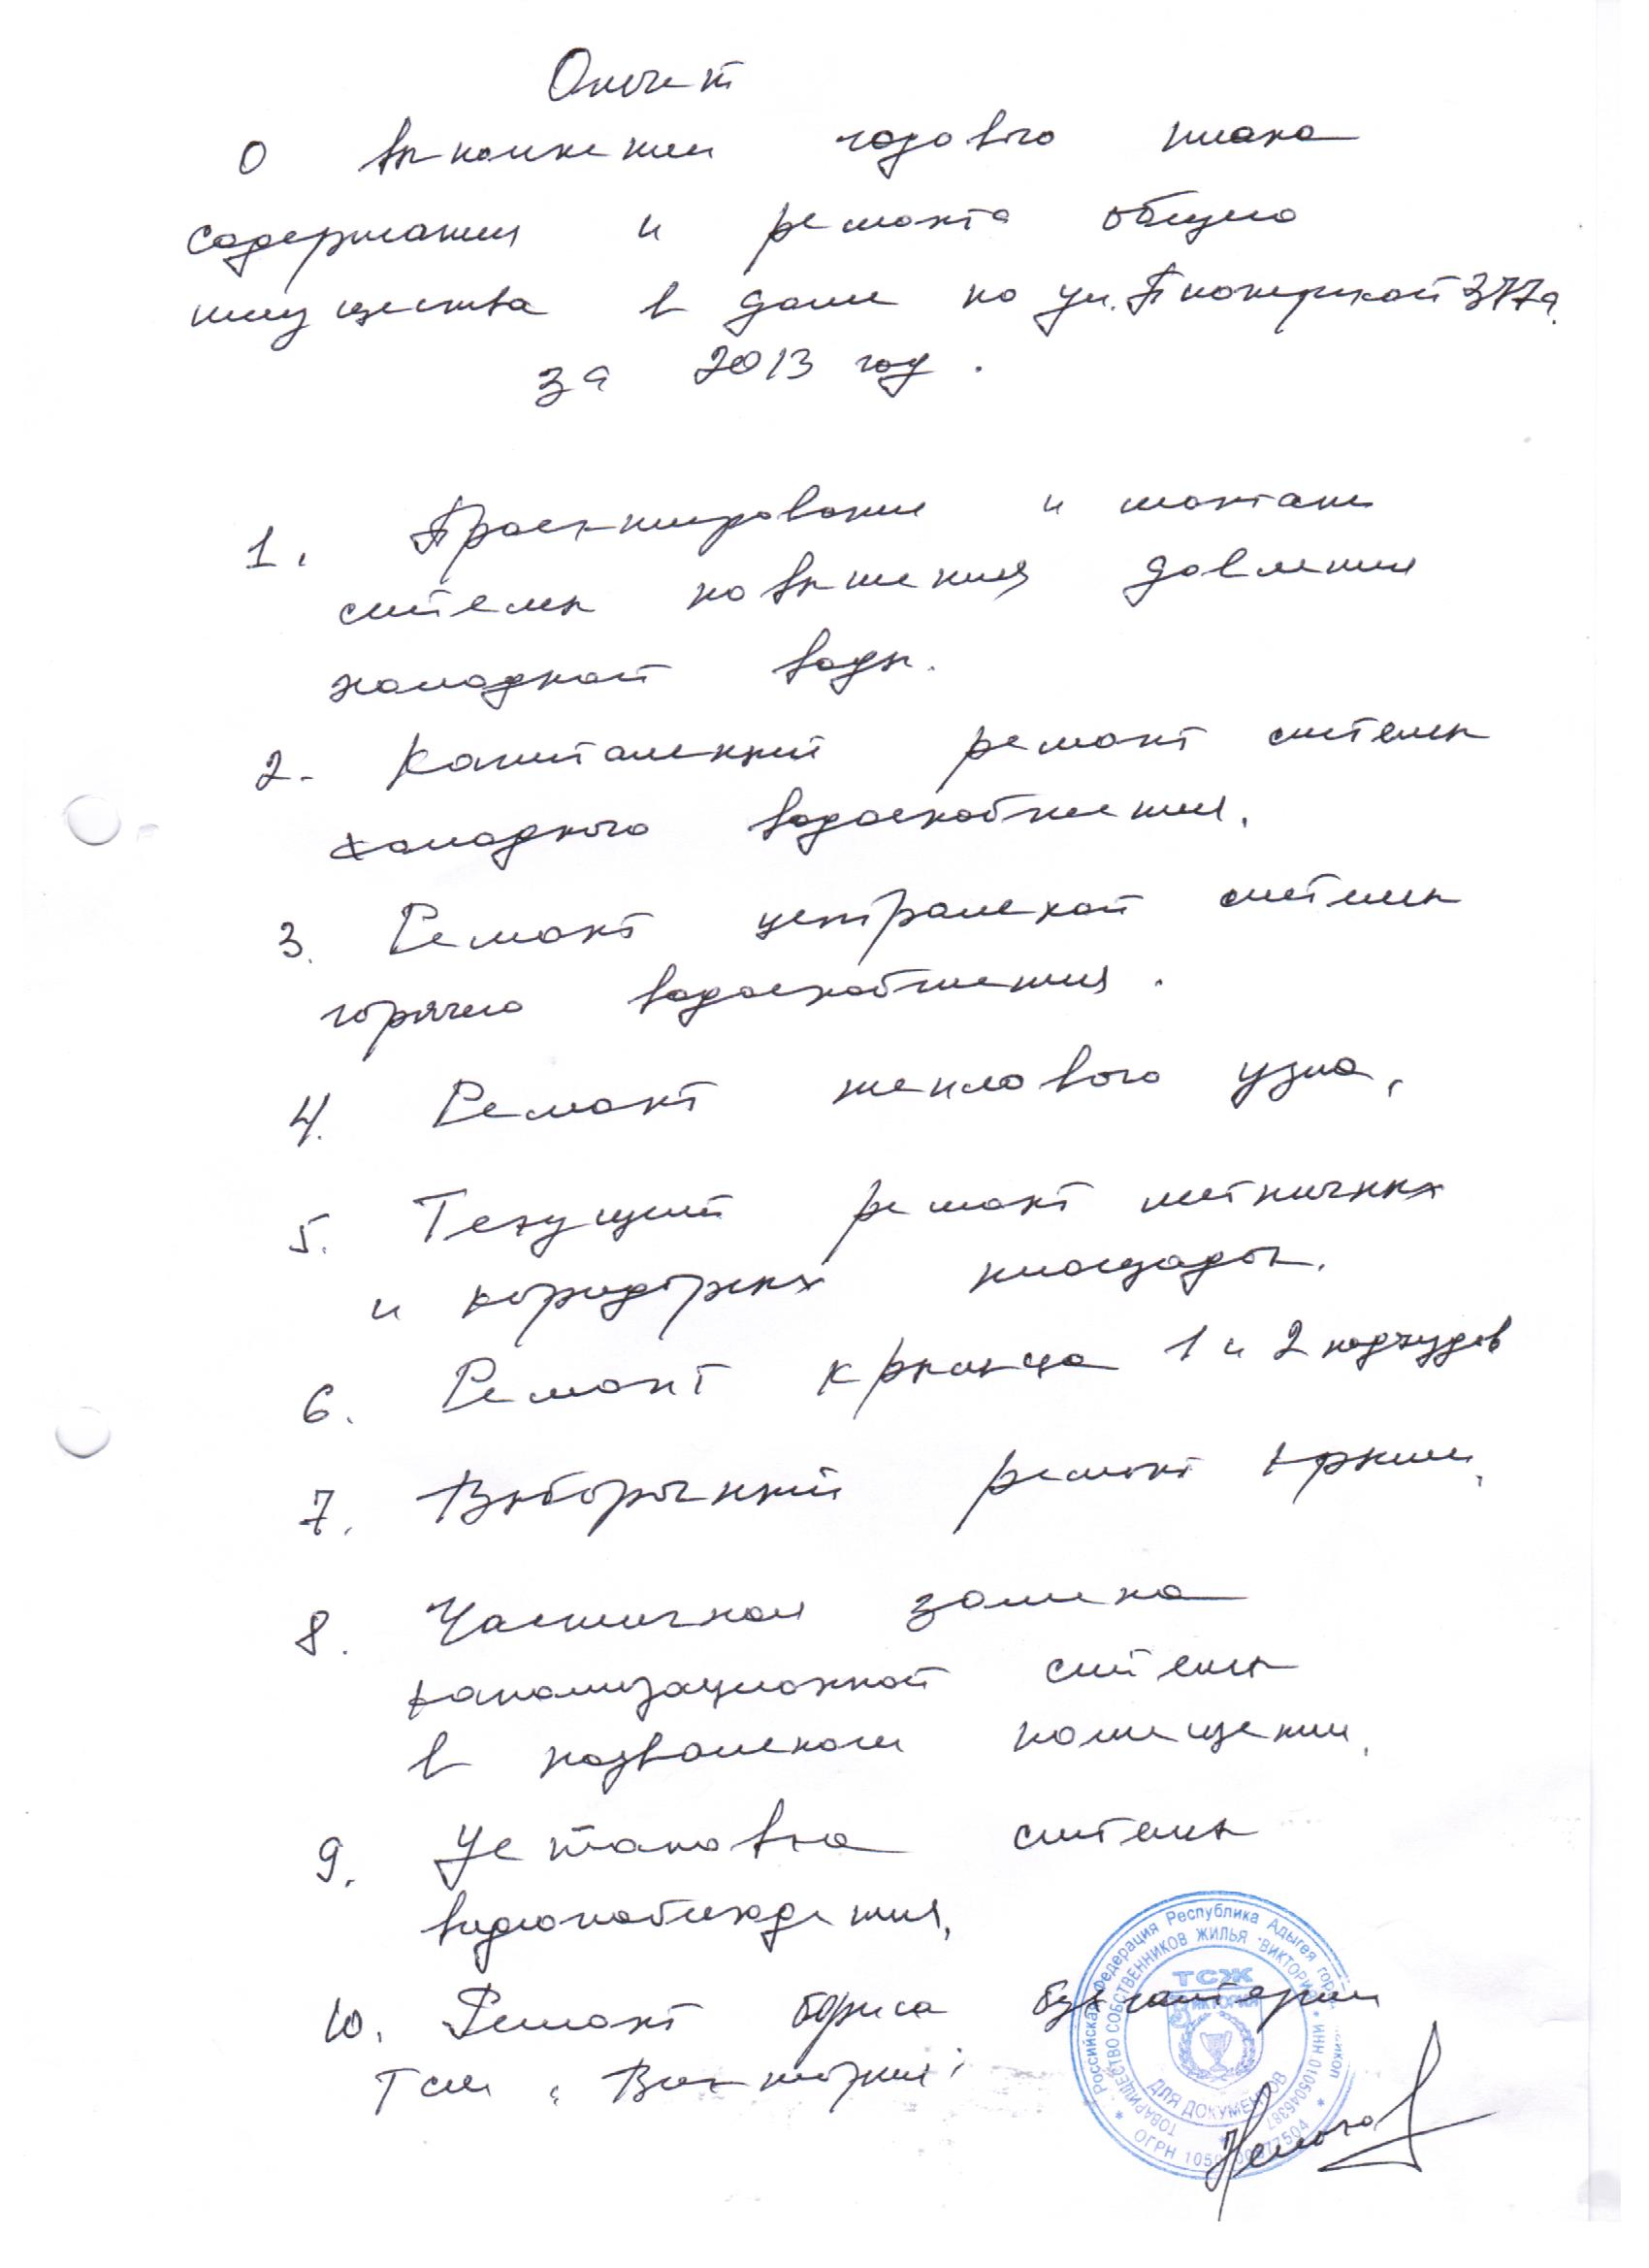 Отчет
О выполнении годового плана
содержания и ремонта общего
имущества в доме по ул. Пионерской 377а.
за 2013 год.
1. Проектирование и монтаж
системы повышения давления
холодной воды.
2. Капитальный ремонт системы
холодного водоснабжения.
3. Ремонт центральной системы
горячего водоснабжения.
4. Ремонт теплового узла.
5. Текущий ремонт лестничных
и коридорных площадок.
6. Ремонт крыльца 1 и 2 подъездов
7. Выборочный ремонт крыши.
8. Частичная замена
канализационной системы
в подвальном помещении.
9. Установка системы
видеонаблюдения.
10. Ремонт офиса бухгалтерии
ТСЖ "Виктория"
Российская Федерация Республика Адыгея город
ТОВАРИЩЕСТВО СОБСТВЕННИКОВ ЖИЛЬЯ "ВИКТОРИЯ" * ИНН 0105046387
ТСЖ
ВИКТОРИЯ
ДЛЯ ДОКУМЕНТОВ
ОГРН